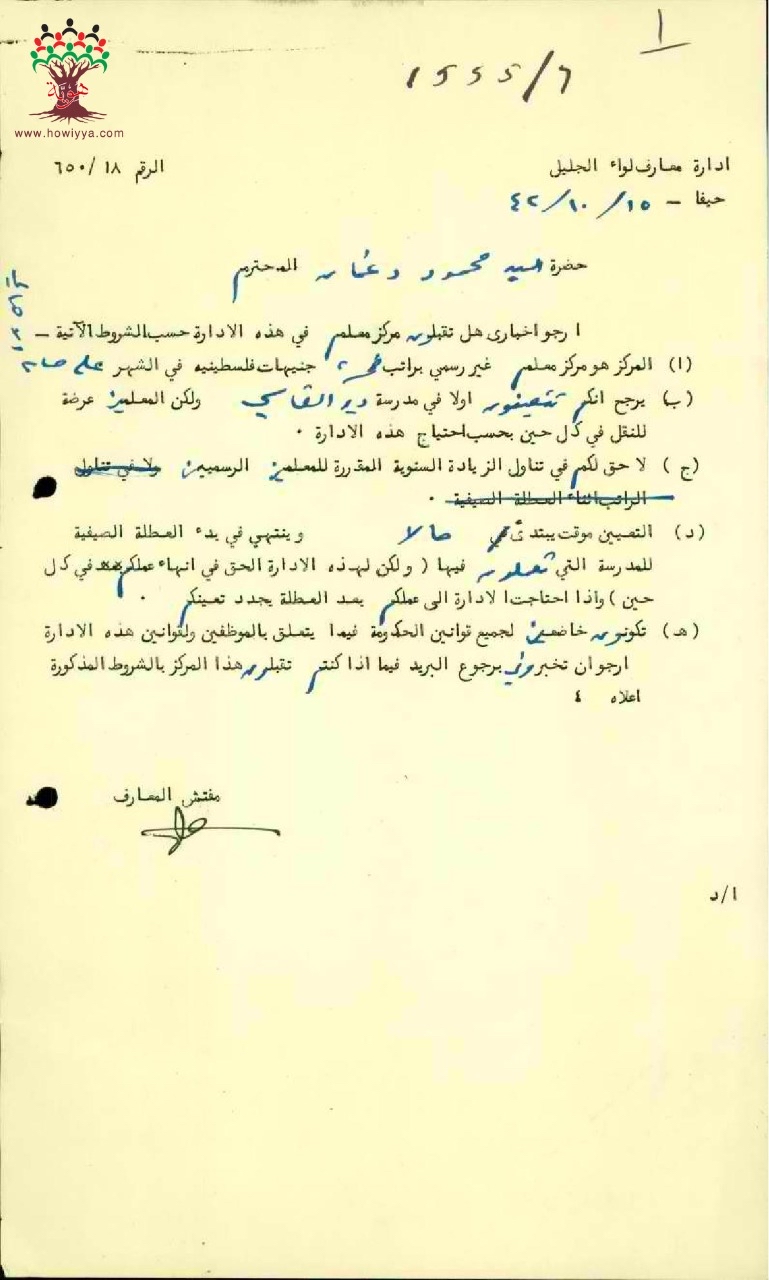 هوية
www.howiyya.com
١
١٥٥٥/٦
ادارة معارف لواء الجليل
الرقم ١٨/٦٥٠
حيفا – ١٥/١٠/٤٢
حضرة السيد محمود دغمان المحترم
ارجو اخبارى هل تقبلون مركز معلم في هذه الادارة حسب الشروط الآتية –
(ا) المركز هو مركز معلم غير رسمي براتب جنيهات فلسطينيه في الشهر على حساب
(ب) يرجح انكم تتعينون اولا في مدرسة دير القاسي ولكن المعلمين عرضة
للنقل في كل حين بحسب احتياج هذه الادارة ٠
(ج) لا حق لكم في تناول الزيادة السنوية المقررة للمعلمين الرسميين ولا في تناول
الراتب اثناء العطلة الصيفية ٠
(د) التعيين موقت يبتدئ حالا وينتهي في بدء العطلة الصيفية
للمدرسة التي تعملون فيها ( ولكن لهذه الادارة الحق في انهاء عملكم في كل
حين ) واذا احتاجت الادارة الى عملكم بعد العطلة يجدد تعينكم ٠
(هـ) تكونون خاضعين لجميع قوانين الحكومة فيما يتعلق بالموظفين ولقوانين هذه الادارة
ارجو ان تخبروني برجوع البريد فيما اذا كنتم تقبلون هذا المركز بالشروط المذكورة
اعلاه ٤
مفتش المعارف
ا/د